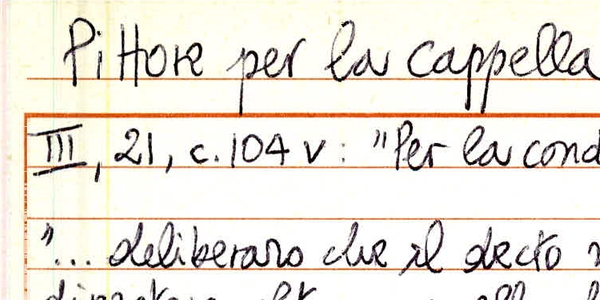 Pittore per la cappella
III, 21, c. 104 v: "Per la cond
"... deliberaro che il decto